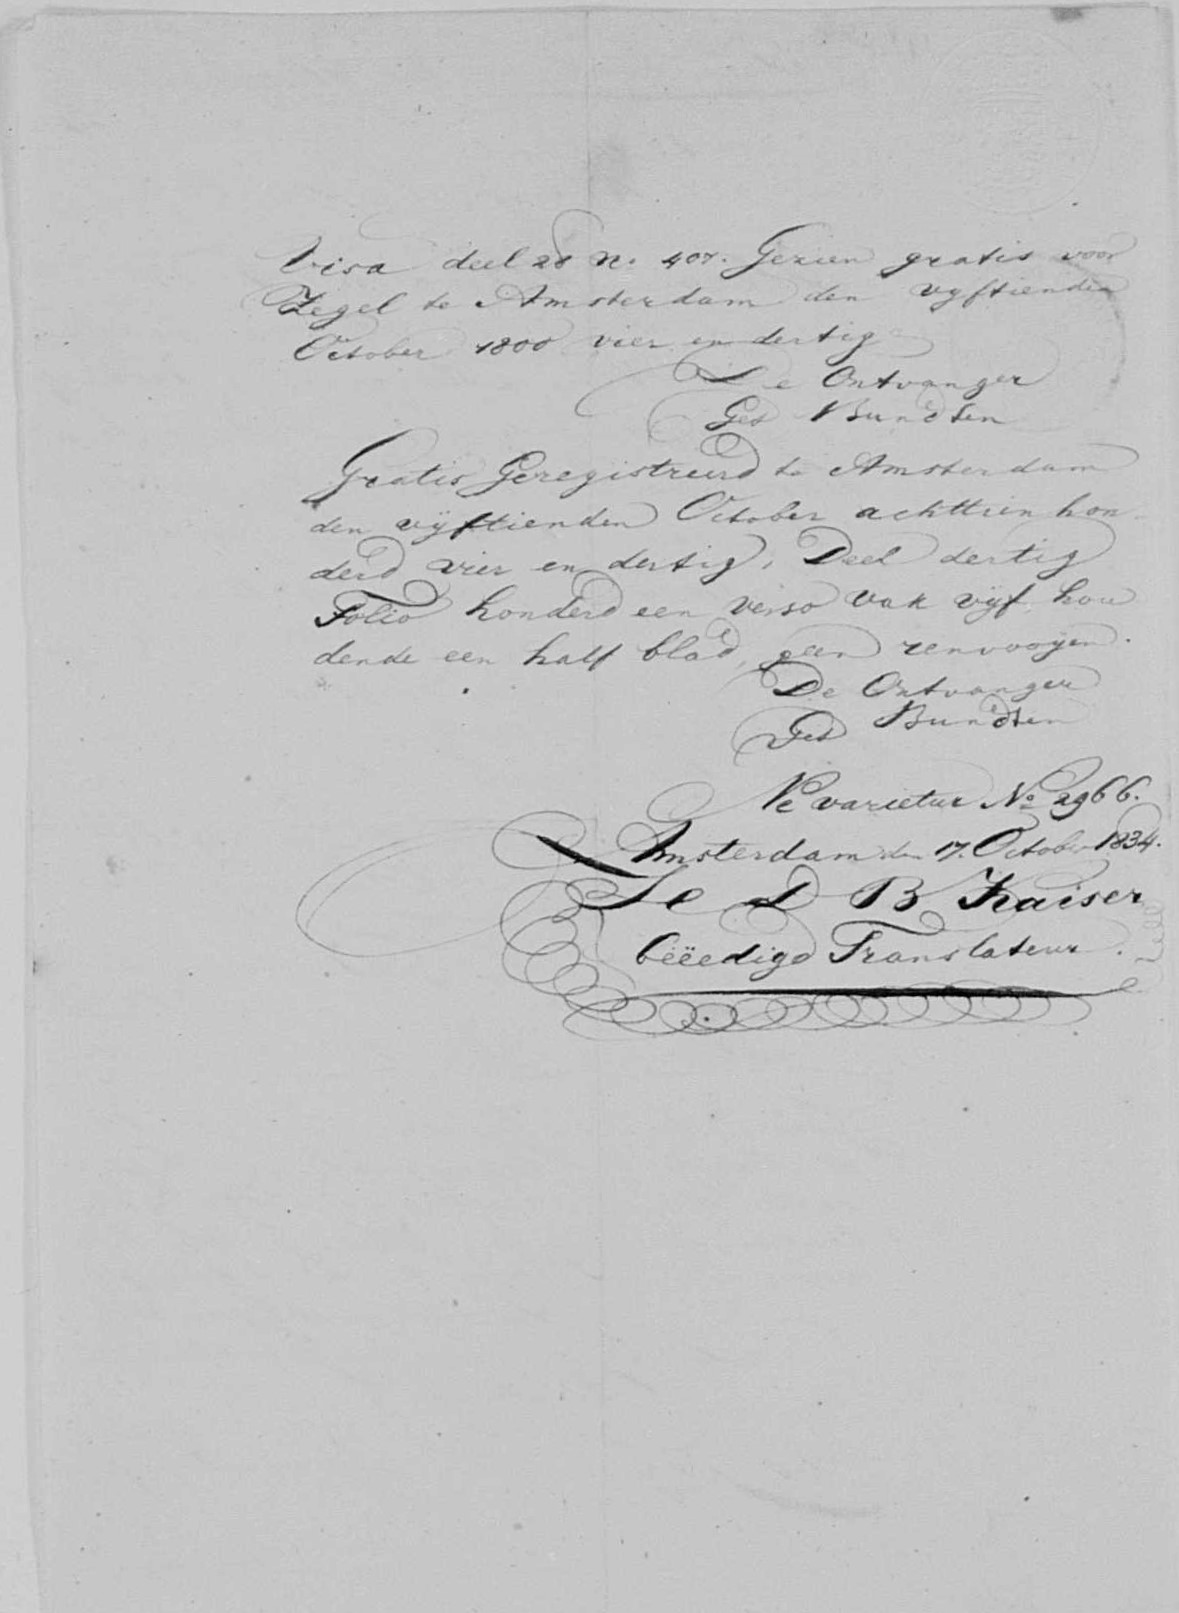 Visa deel 28 N. 407. Gezien gratis voor
Zegel te Amsterdam den vyftienden
October 1800 vier en dertig
De Ontvanger
Get Bundten
Gratis Geregistreerd te Amsterdam
den vijftienden October achttien hon
derd vier en dertig, Deel dertig
Folio honderd een verso vak vijf hou
dende een half blad, geen renvooyen.
De Ontvanger
Get Bundten
Ne varietur No 2966.
Amsterdam den 17. October 1834.
B Kaiser
beëedigd Translateur.